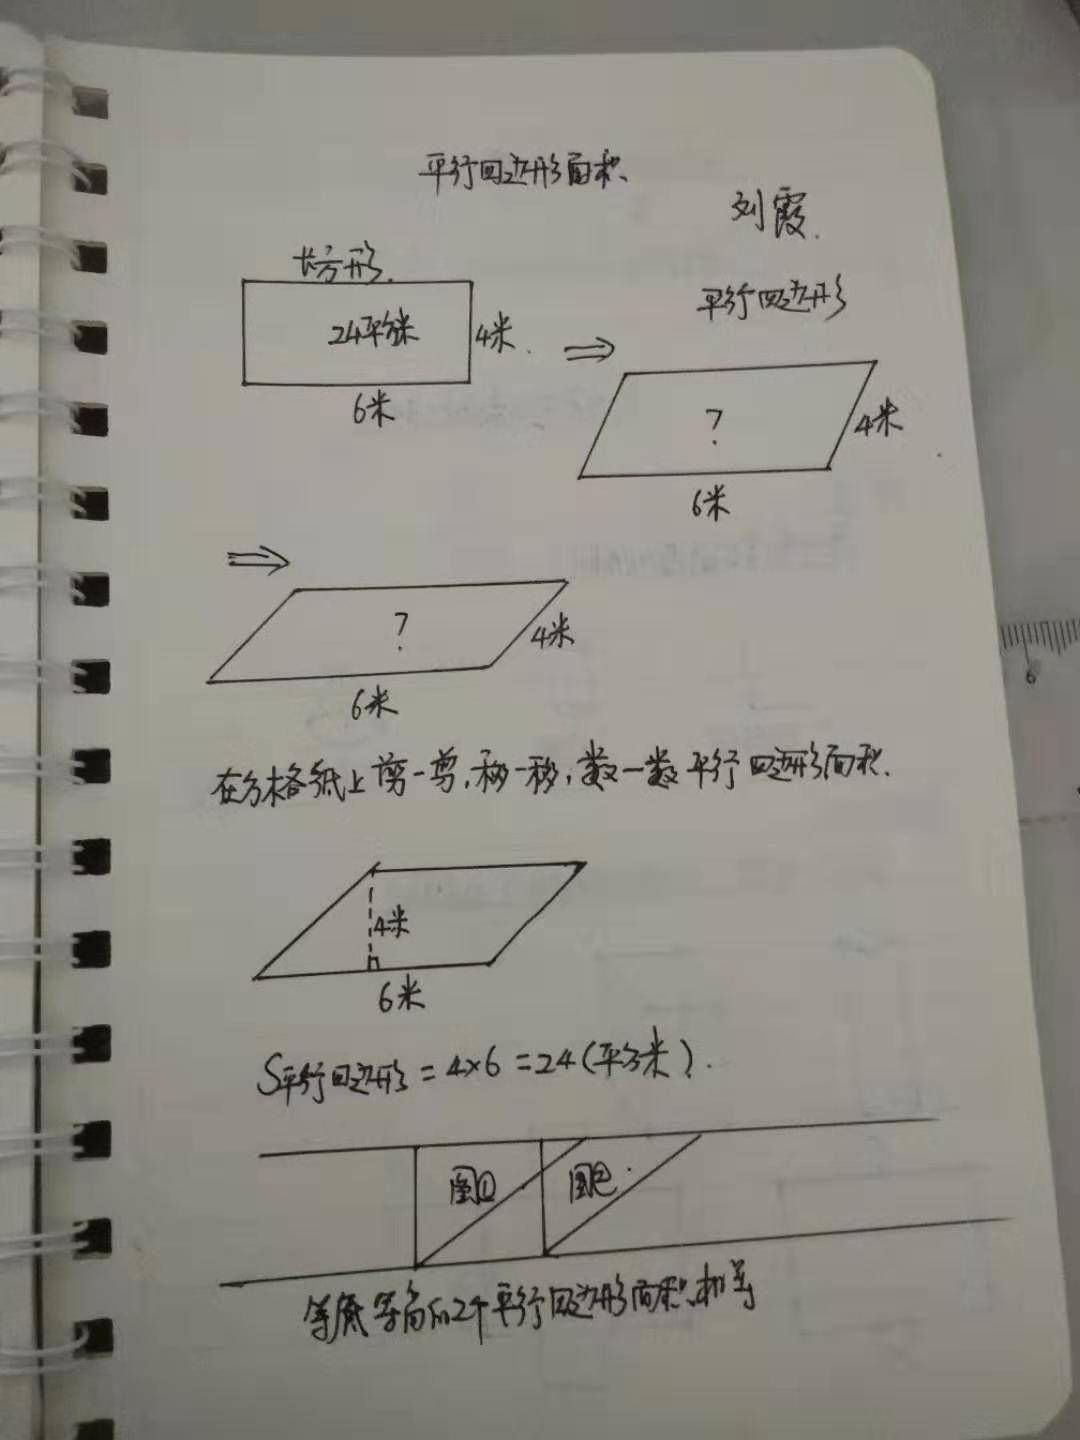 平行四边形面积
刘霞.
长方形.
24平方米
4米.
6米
平行四边形
?
4米
6米
?
4米
6米
在方格纸上剪一剪,移一移,数一数平行四边形面积.
4米
6米
S平行四边形=4×6=24(平方米).
图①
图②
等底等高的2个平行四边形面积相等
6